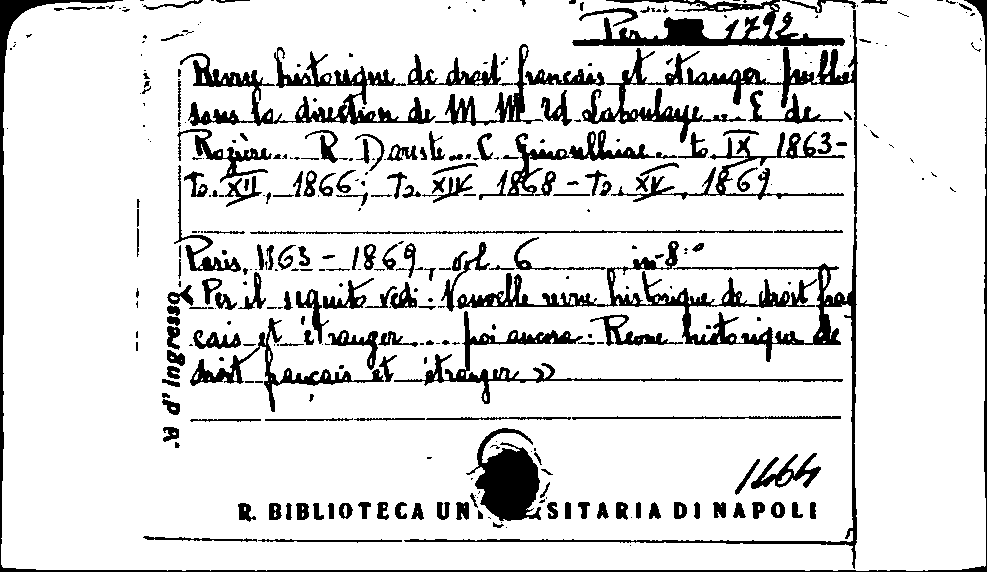 Per. 1792.
Revue historique de droit français et étranger publiée
sous la direction de M M Ed Laboulaye... E de
Rozière... R Dareste... C Ginoulhiac. to. IX, 1863-
to. XII, 1866; to. XIV, 1868 - to. XV, 1869.
Paris, 1863 - 1869, vol. 6 in-8°
« Per il seguito vedi: Nouvelle revue historique de droit fran
çais et étranger... poi ancora: Revue historique de
droit français et étranger »
d'Ingresso
R. BIBLIOTECA UNIVERSITARIA DI NAPOLI